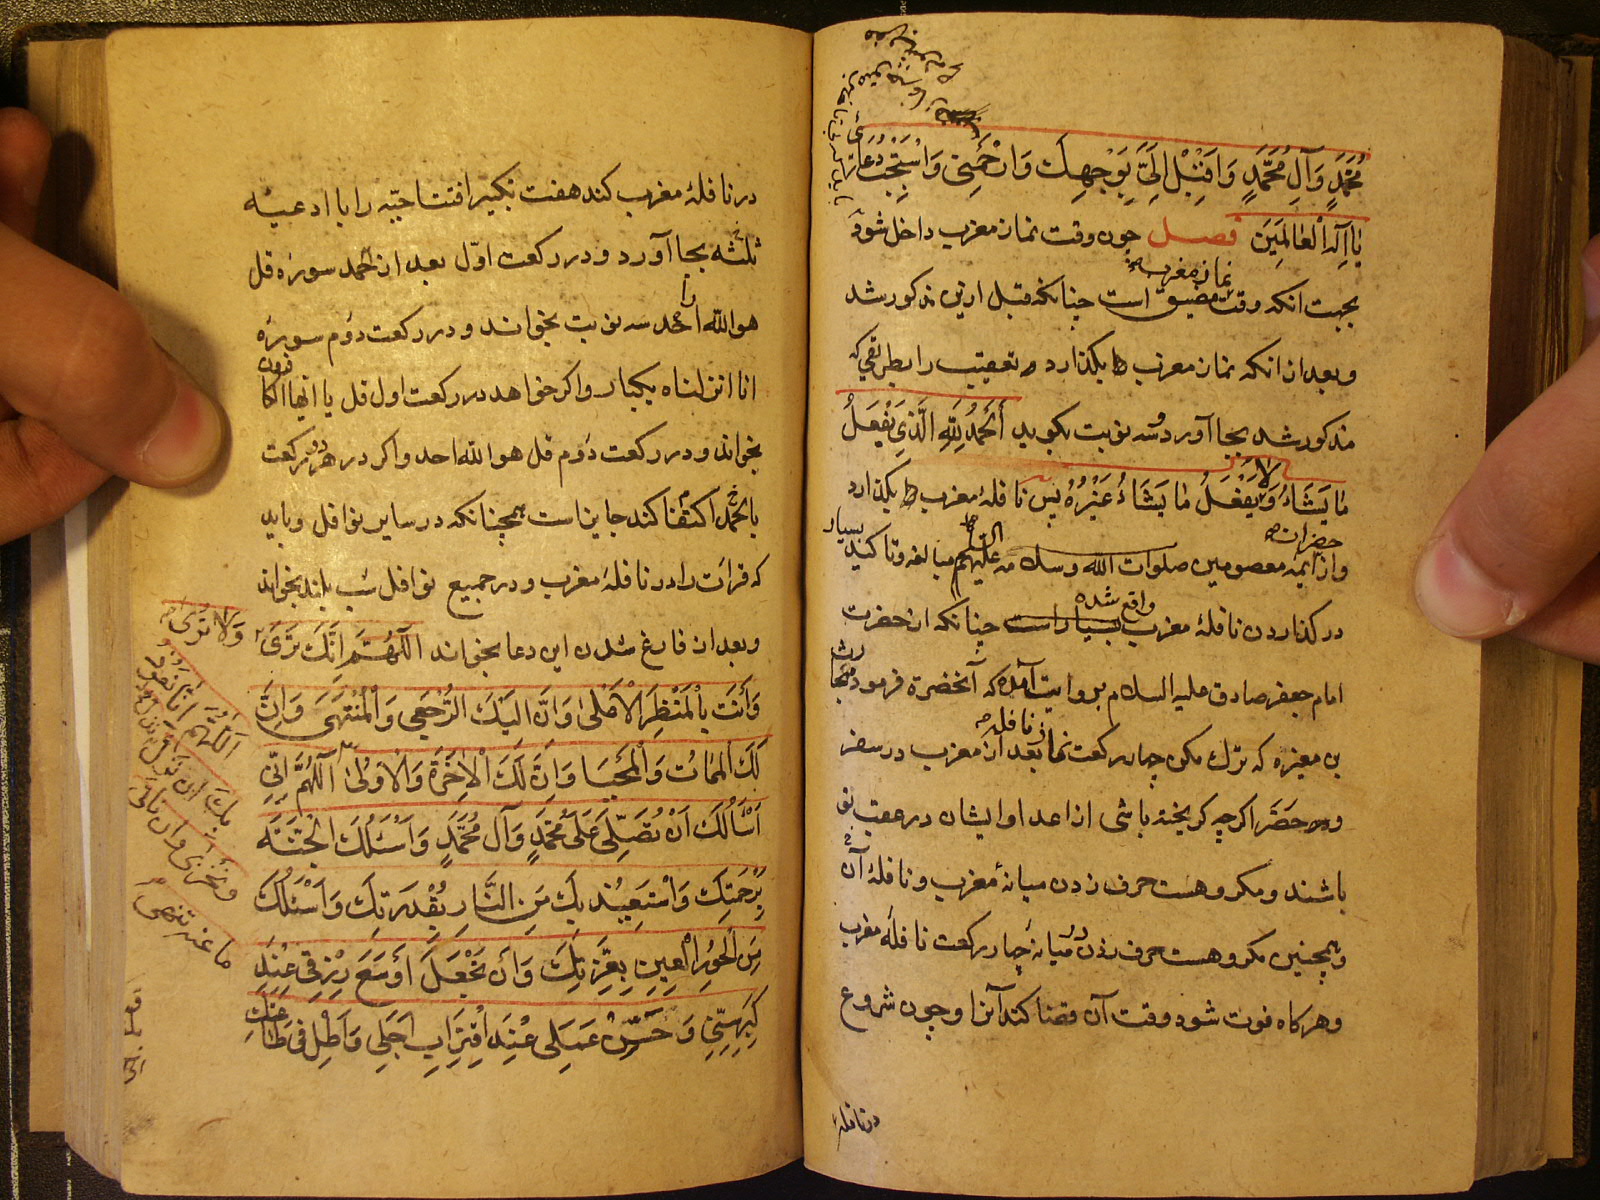 مُحَمَّدٍ وَآلِ مُحَمَّدٍ وَاَقْبِلْ اِلَيَّ بِوَجْهِكَ وَارْحَمْنِي وَاسْتَجِبْ دُعَائِي
يَا اِلٰهَ الْعَالَمِينَ فصل چون وقت نماز مغرب داخل شود
بجهت آنکه وقت نماز مغرب مضیق است چنانکه قبل ازین مذکور شد
و بعد از آنکه نماز مغرب بکذارد و تعقیب را بطریقی که
مذکور شد بجا آورد و سه نوبت بکوید اَلْحَمْدُ لِلّٰهِ الَّذِي يَفْعَلُ
مَا يَشَاءُ وَلَا يَفْعَلُ مَا يَشَاءُ غَيْرُهُ پس نافلهٔ مغرب بکذارد
و از حضرات ائمه معصومین صلوات الله وسلامه علیهم مبالغه و تاکید بسیار
در کذاردن نافلهٔ مغرب واقع شده چنانکه از حضرت
امام جعفر صادق علیه السلام روایت آمده که آنحضرة فرمود بحارث
بن مغیره که ترک مکن چهار رکعت نماز نافله بعد از مغرب در سفر
و حضر اکرچه کریخته باشی از اعدا و ایشان در عقب تو
باشند و مکروهست حرف زدن میانهٔ مغرب و نافلهٔ آن
و همچنین مکروهست حرف زدن در میانهٔ چهار رکعت نافلهٔ مغرب
و هرکاه فوت شود وقت آن قضا کند آنرا و چون شروع
در نافلهٔ
در نافلهٔ مغرب کند هفت تکبیر افتتاحیّه را با ادعیهٔ
ثلثه بجا آورد و در رکعت اوّل بعد از حمد سورهٔ قل
هو الله احد را سه نوبت بخواند و در رکعت دوم سورهٔ
انا انزلناه یکبار و اکر خواهد در رکعت اول قل یا ایها الکافرون
بخواند و در رکعت دوم قل هو الله احد و اکر در هر دو رکعت
بالحمد اکتفا کند جایز است همچنانکه در سایر نوافل و باید
که قرائت را در نافلهٔ مغرب و در جمیع نوافل شب بلند بخواند
و بعد از فارغ شدن این دعا بخواند اَللّٰهُمَّ اِنَّكَ تَرٰى
وَلَا تُرٰى
وَاَنْتَ بِالْمَنْظَرِ الْاَعْلٰى وَاَنَّ اِلَيْكَ الرُّجْعٰى وَالْمُنْتَهٰى وَاِنَّ
لَكَ الْمَمَاتَ وَالْمَحْيَا وَاِنَّ لَكَ الْاٰخِرَةَ وَالْاُولٰى اَللّٰهُمَّ اِنِّي
اَسْأَلُكَ اَنْ تُصَلِّيَ عَلٰى مُحَمَّدٍ وَآلِ مُحَمَّدٍ وَاَسْئَلُكَ الْجَنَّةَ
بِرَحْمَتِكَ وَاَسْتَعِيذُ بِكَ مِنَ النَّارِ بِقُدْرَتِكَ وَاَسْئَلُكَ
مِنَ الْحُورِ الْعِينِ بِعِزَّتِكَ وَاَنْ تَجْعَلَ اَوْسَعَ رِزْقِي عِنْدَ
كِبَرِ سِنِّي وَحَسِّنْ عَمَلِي عِنْدَ اقْتِرَابِ اَجَلِي وَاَطِلْ فِي طَاعَتِكَ
اَللّٰهُمَّ اِنَّا نَعُوذُ
بِكَ اَنْ نَذِلَّ
وَنَخْزٰى وَاَنْ نَأْتِيَ
مَا عَنْهُ تَنْهٰى